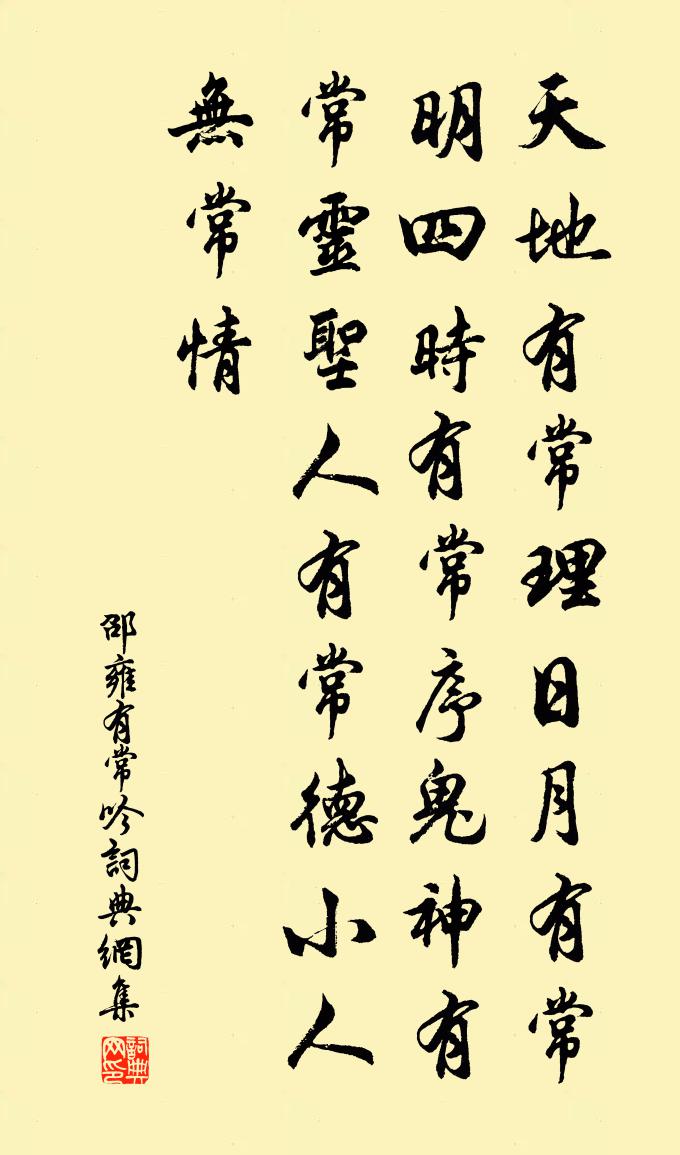 天地有常理日月有常
明四時有常序鬼神有
常靈聖人有常德小人
無常情
邵雍有常吟詞典網集
詞典网印